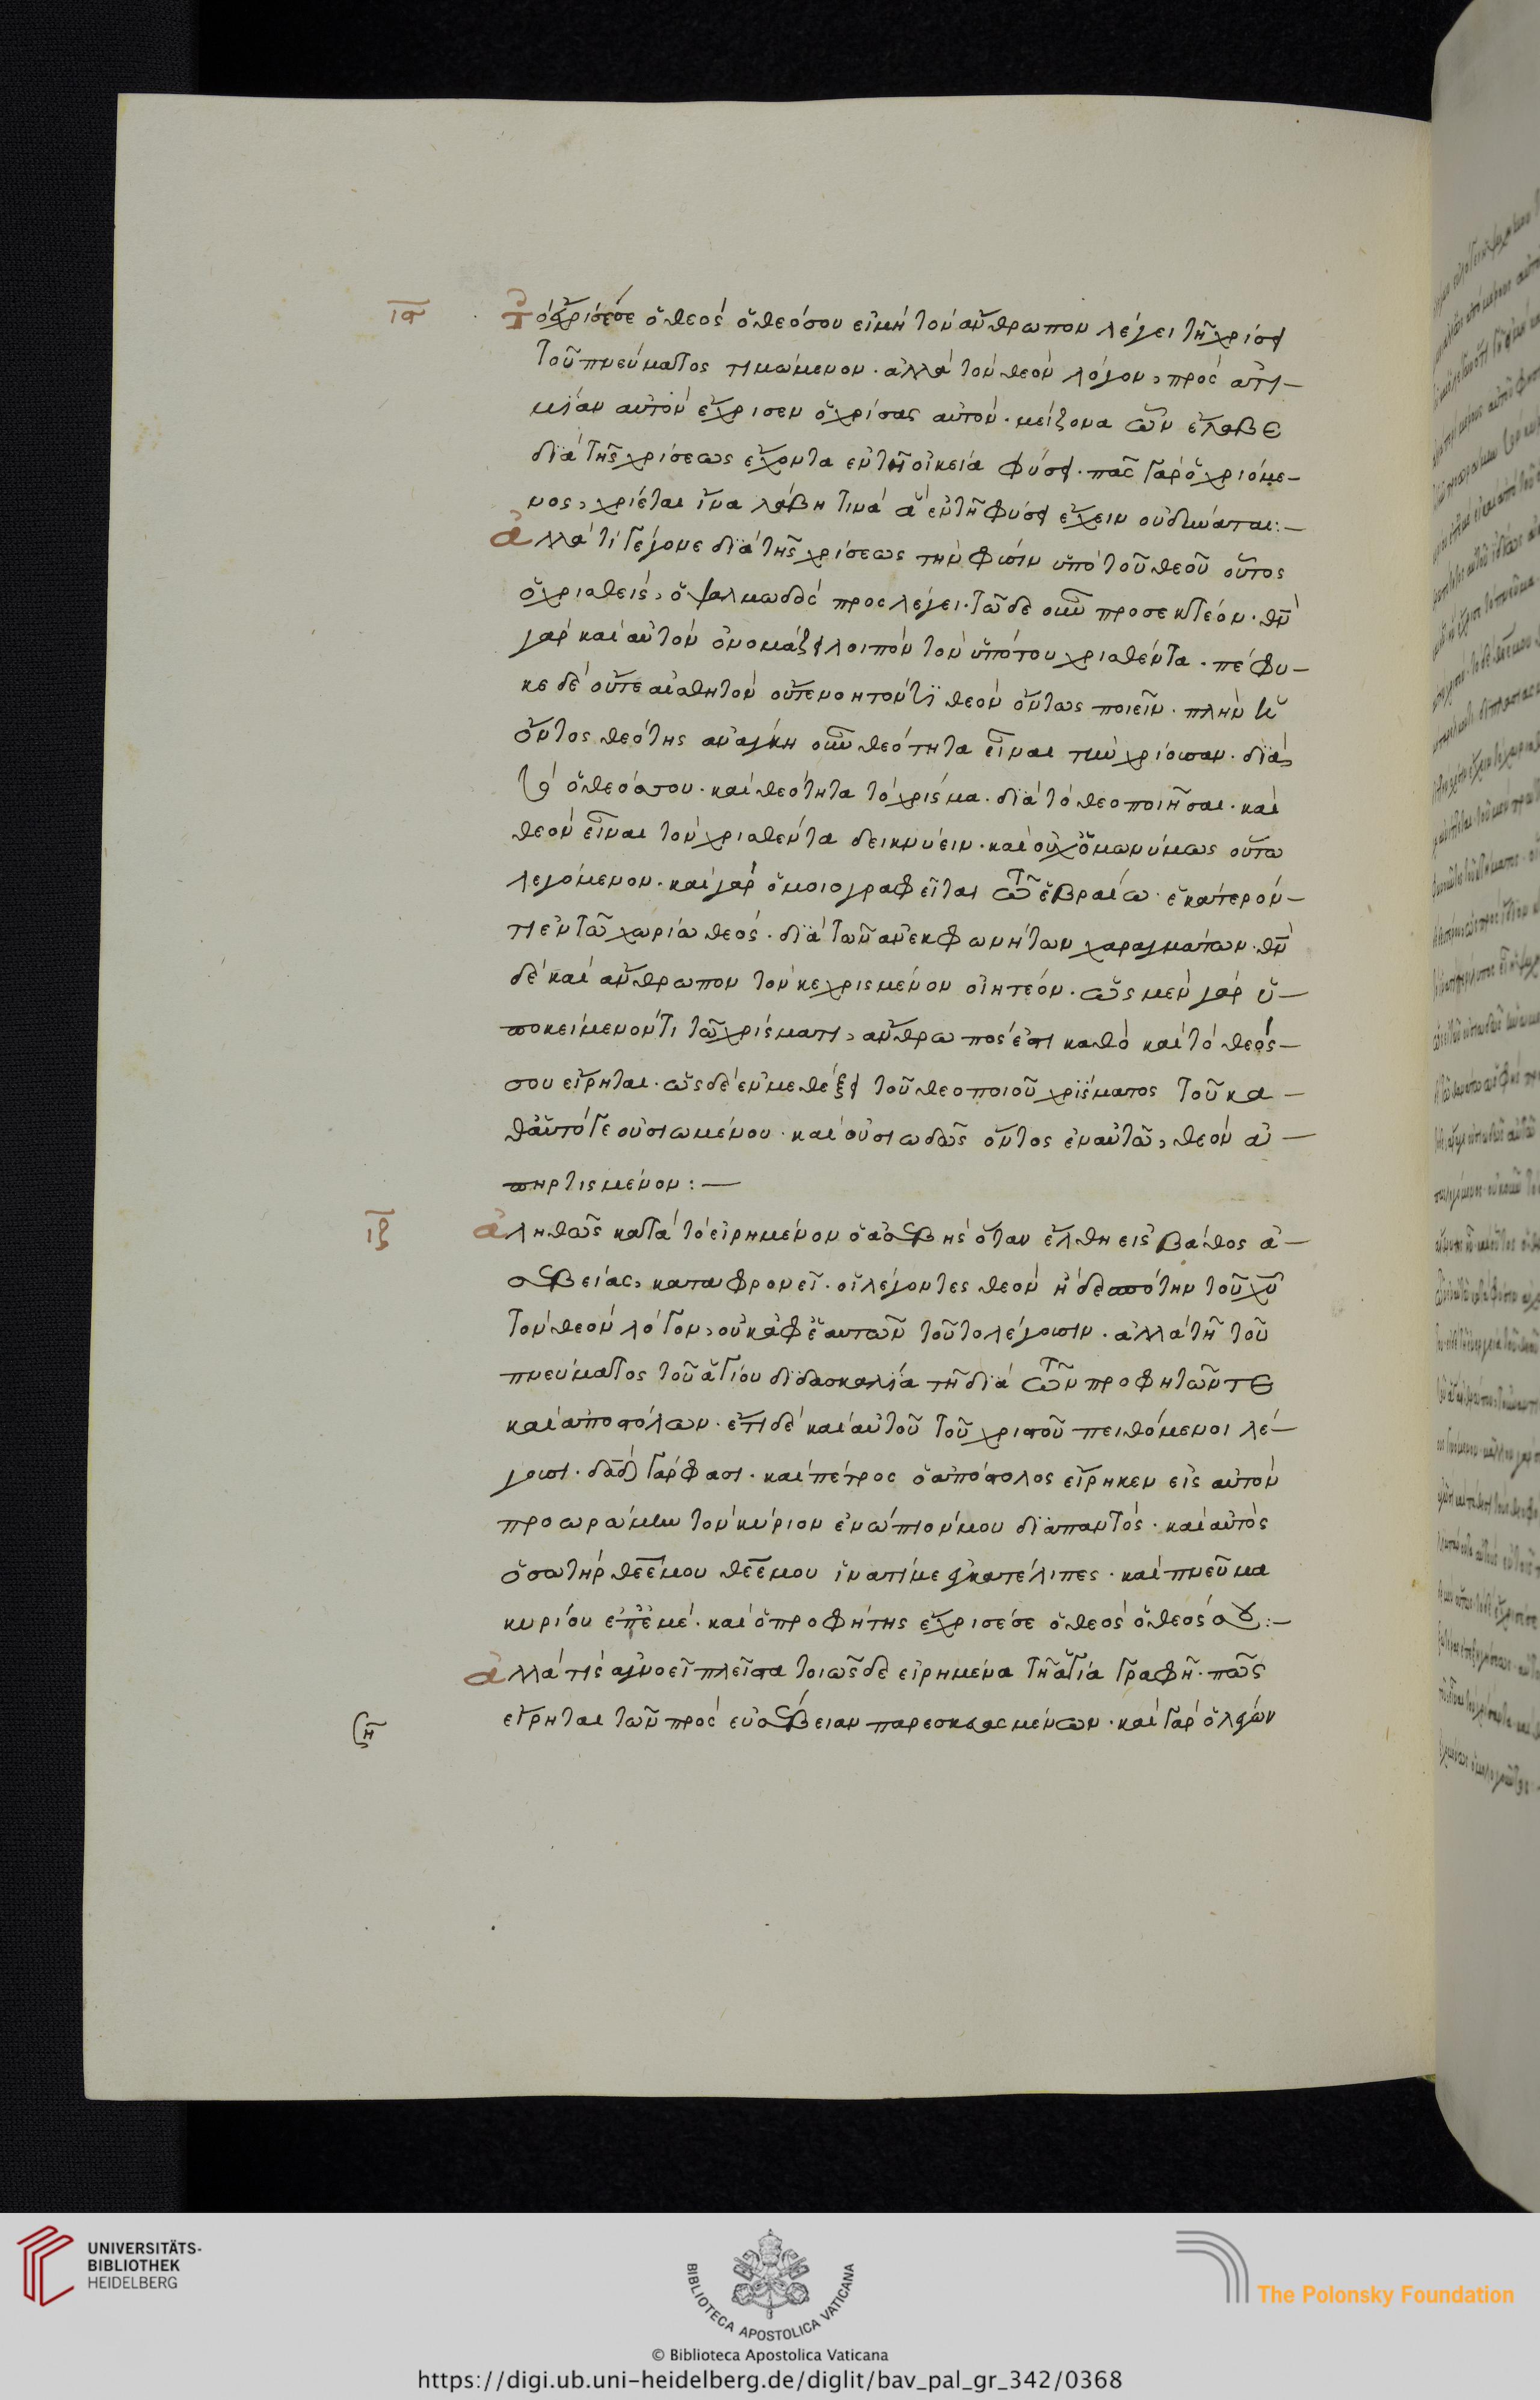 ις
τὸ ἔχρισέ σε ὁ θεὸς ὁ θεός σου εἰ μὴ τὸν ἄνθρωπον λέγει τῆ χρίσει
τοῦ πνεύματος τιμώμενον· ἀλλὰ τὸν θεὸν λόγον, πρὸς ἀτι-
μίαν αὐτὸν ἔχρισεν ὁ χρίσας αὐτόν· μείζονα ὧν ἔλαβε
διὰ τῆς χρίσεως ἔχοντα ἐν τῆ οἰκεία φύσει· πᾶς γὰρ ὁ χριόμε-
νος, χρίεται ἵνα λάβη τινὰ ἃ ἐν τῆ φύσει ἔχειν οὐ δύναται:-
ἀλλὰ τί γέγονε διὰ τῆς χρίσεως τὴν φύσιν ὑπὸ τοῦ θεοῦ οὗτος
ὁ χρισθεὶς, ὁ ψαλμωδὸς προσλέγει· τῶδε οὖν προσεκτέον· θν
γὰρ καὶ αὐτὸν ὀνομάζει λοιπὸν τὸν ὑπὸ του χρισθέντα· πέφυ-
κε δὲ οὔτε αἰσθητὸν οὔτε νοητόν τι θεὸν ὄντως ποιεῖν· πλὴν
ὄντος θεότης ἀνάγκη οὖν θεότητα εἶναι τὴν χρίουσαν· διὰ
τὸ ὁ θεός σου· καὶ θεότητα τὸ χρίσμα· διὰ τὸ θεοποιῆσαι· καὶ
θεὸν εἶναι τὸν χρισθέντα δεικνύειν· καὶ οὐχ ὁμωνύμως οὕτω
λεγόμενον· καὶ γὰρ ὁμοιογραφεῖται τῶ ἑβραίω· ἑκάτερόν-
τι ἐν τῶ χωρίω θεός· διὰ τῶν ἀνεκφωνήτων χαραγμάτων· θν
δὲ καὶ ἄνθρωπον τὸν κεχρισμένον οἰητέον· ὡς μὲν γὰρ ὑ-
ποκείμενόν τι τῶ χρίσματι, ἄνθρωπός ἐστι καθὸ καὶ τὸ θεός-
σου εἴρηται· ὡς δὲ ἐν μεθέξει τοῦ θεοποιοῦ χρίσματος τοῦ κα-
θ' αὑτό γε οὐσιωμένου· καὶ οὐσιωδῶς ὄντος ἐν αὐτῶ, θεὸν ἀ-
πηρτισμένον:-
ιζ
ἀληθῶς κατὰ τὸ εἰρημένον ὁ ἀσεβὴς ὅταν ἔλθη εἰς βάθος ἀ-
σεβείας, καταφρονεῖ· οἱ λέγοντες θεὸν ἢ δεσπότην τοῦ χυ
τὸν θεὸν λόγον, οὐκ ἀφ' ἑαυτῶν τοῦτο λέγουσιν· ἀλλὰ τῆ τοῦ
πνεύματος τοῦ ἁγίου διδασκαλία τῆ διὰ τῶν προφητῶν τε
καὶ ἀποστόλων· ἔτι δὲ καὶ αὐτοῦ τοῦ χριστοῦ πειθόμενοι λέ-
γουσι· δαδ γάρ φασι· καὶ πέτρος ὁ ἀπόστολος εἴρηκεν εἰς αὐτὸν
προωρώμην τὸν κύριον ἐνώπιόν μου διαπαντός· καὶ αὐτὸς
ὁ σωτὴρ θεέ μου θεέ μου ἱνατί με ἐγκατέλιπες· καὶ πνεῦμα
κυρίου ἐπ' ἐμέ· καὶ ὁ προφήτης ἔχρισέ σε ὁ θεὸς ὁ θεός σου:-
ἀλλὰ τίς ἀγνοεῖ πλεῖστα τοιῶσδε εἰρημένα τῆ ἁγία γραφῆ· πῶς
ιη
εἴρηται τῶν πρὸς εὐσέβειαν παρεσκευασμένων· καὶ γὰρ ὁ λέγων
UNIVERSITÄTS-
BIBLIOTHEK
HEIDELBERG
BIBLIOTECA APOSTOLICA VATICANA
The Polonsky Foundation
© Biblioteca Apostolica Vaticana
https://digi.ub.uni-heidelberg.de/diglit/bav_pal_gr_342/0368